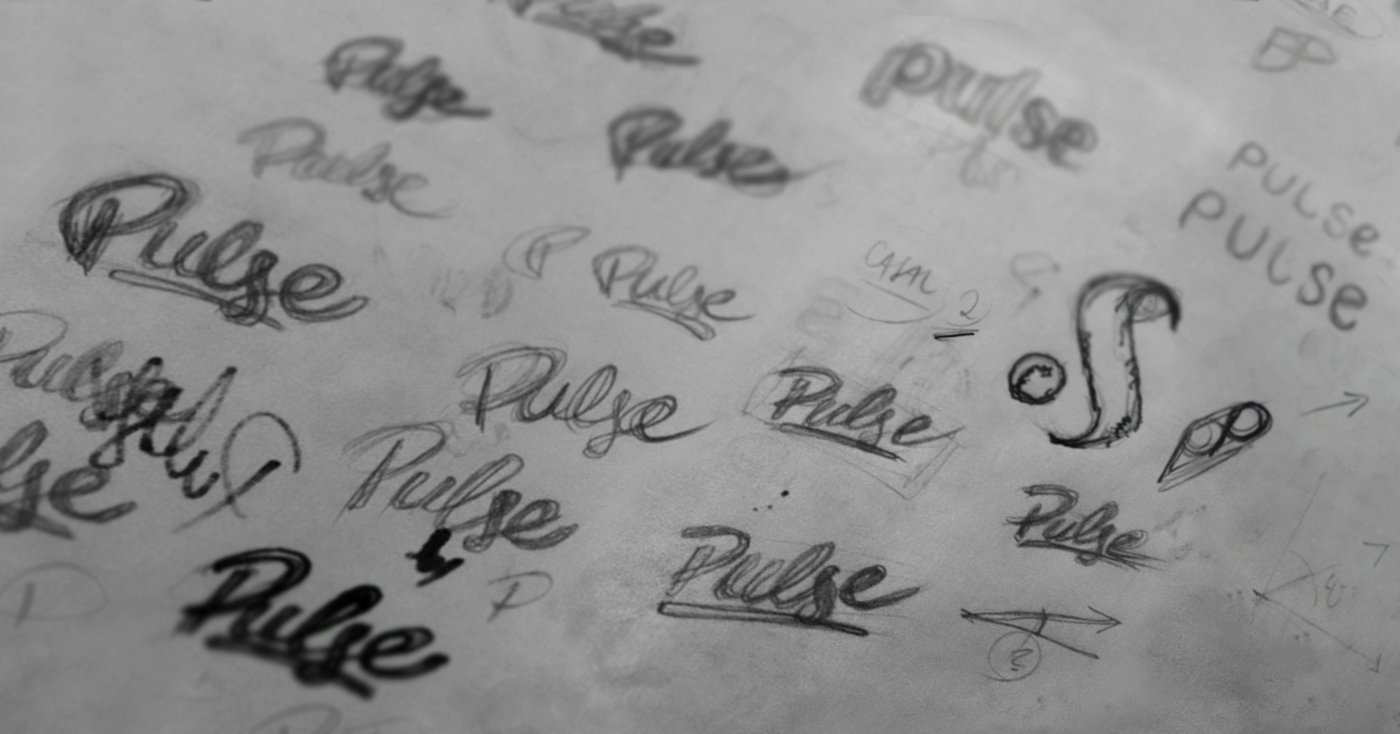 Pulse
Pulse
pulse
Pulse
Pulse
PULSe
PULSe
Pulse
P
Pulse
CASAL
2
Pulse
Pulse
Pulse
lse
Pulse
Pulse
P
Pulse
Pulse
P